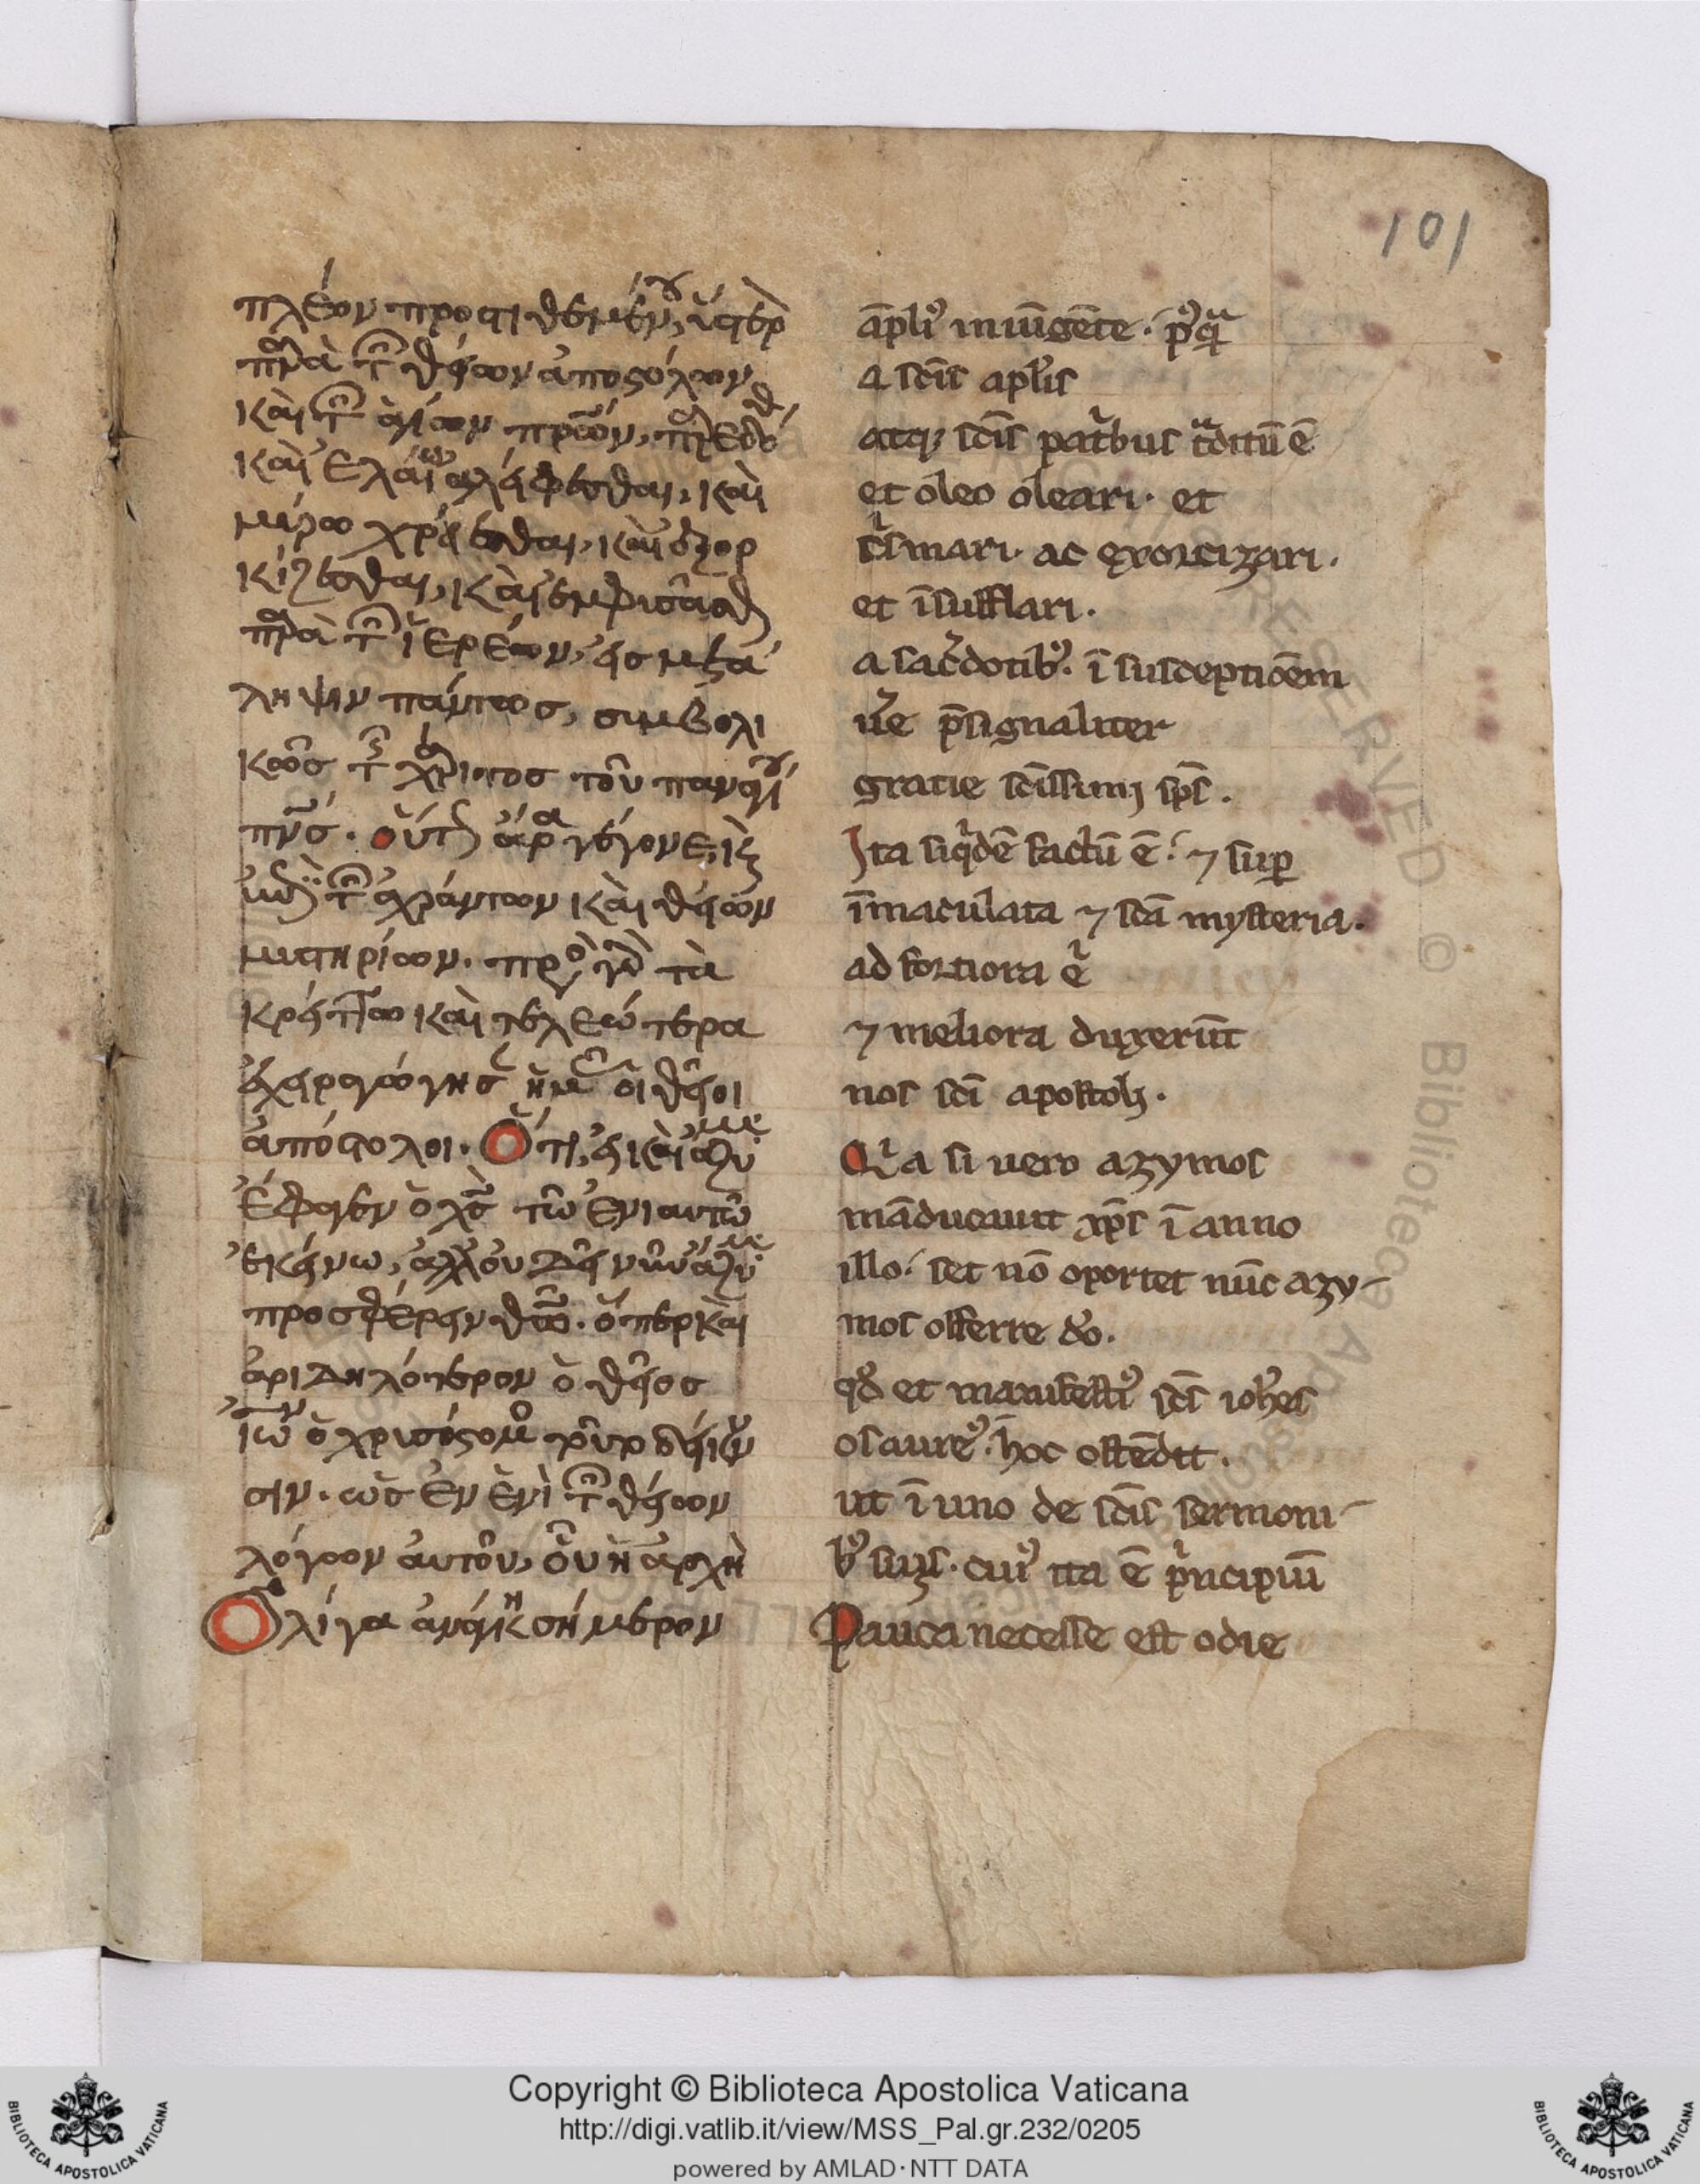 101
πλέον προστιθεμένου, ὕστερ
παρὰ τῶν θείων ἀποστόλων
καὶ τῶν ἁγίων πρων, παρεδόθ
καὶ ἐλαίω ἀλείφεσθαι, καὶ
μύρω χρίεσθαι, καὶ ἐξορ
κίζεσθαι, καὶ ἐμφυσᾶσθαι
παρὰ τῶν ἱερέων, εἰς μετά
ληψιν πάντως, συμβολι
κῶς τῆς χάριτος τοῦ παναγίου
πνς. οὕτως ἄρα γέγονε,
τῶν ἀχράντων καὶ θείων
μυστηρίων. πρὸς γὰρ τὰ
κρείττω καὶ τελεώτερα
ἐχειραγώγησαν ἡμᾶς οἱ θεῖοι
ἀπόστολοι. Ὅτι, εἰ καὶ ἄζυμα
ἔφαγεν ὁ χς τῶ ἐνιαυτῶ
ἐκείνω, ἀλλ' οὐ δεῖ νῦν ἄζυμα
προσφέρειν θω. ὅπερ καὶ
ἀριδηλότερον ὁ θεῖος
ιω ὁ χρυσόστομος
σιν. ὡς ἐν ἑνὶ τῶν θείων
λόγων αὐτοῦ, οὗ ἡ ἀρχὴ
Ὀλίγα ἀνάγκη σήμερον
āpli' iniūgēte. p'qᵃ
A scīs apl'is
atq; scīs pat'bus tᵃditū ē
et oleo oleari. et
c'smari. ac exorcizari.
et īsufflari.
a sac'dotib'. ī susceptiōem
u'e p̄signaliter
gratie scīssimi sp̄s.
Ita siq'dē factū ē. ⁊ sup
īmaculata ⁊ scā mysteria.
ad fortiora .e.
⁊ meliora duxerūt
nos scī apostoli.
Qia si uero azymos
māducauit xp̄s ī anno
illo. set nō oportet nūc azy-
mos offerre do.
qd et manifesti' scs ioh'es
osaure'. hoc ostēdit.
ut ī uno de scīs sermoni-
b' suis. cui' ita ē p'ncipiū
Pauca necesse est odie
Copyright © Biblioteca Apostolica Vaticana
http://digi.vatlib.it/view/MSS_Pal.gr.232/0205
powered by AMLAD·NTT DATA
BIBLIOTECA APOSTOLICA VATICANA
BIBLIOTECA APOSTOLICA VATICANA